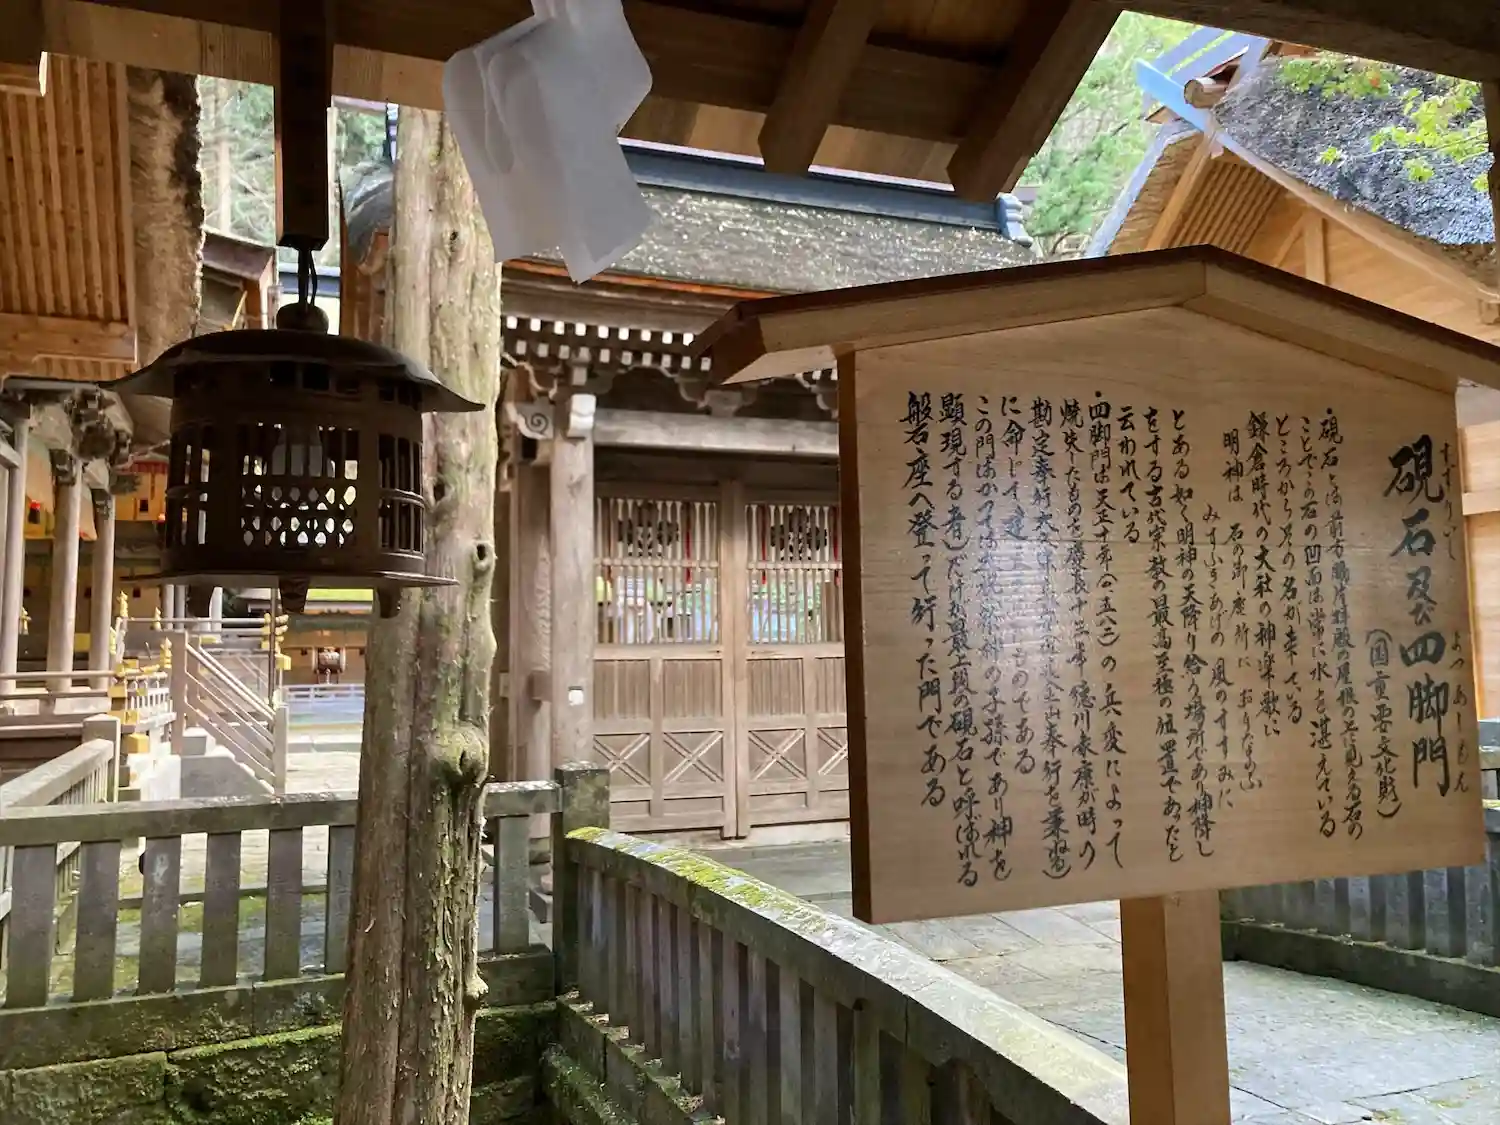 硯石及四脚門
すずりいし
よつあしもん
(国重要文化財)
硯石とは前方勝片拝殿の屋根の上に見える石の
ことでこの石の凹面は常に水を湛えている
ところから其の名が来ている
鎌倉時代の大社の神楽歌に
明神は 石の御座所に おりたまふ
みすふきあげの 風のすすみに
とある如く明神の天降り給う場所であり神降し
をする古代宗教の最高至極の位置であったと
云われている
四脚門は天正十年(一五八二)の兵変によって
焼失したものを慶長十三年徳川家康が時の
勘定奉行大久保(金山奉行を兼ねる)
に命じてものである
この門はかつては大祝が神の子孫であり神を
顕現する者)だけが最上段の硯石と呼ばれる
磐石座へ登って行った門である